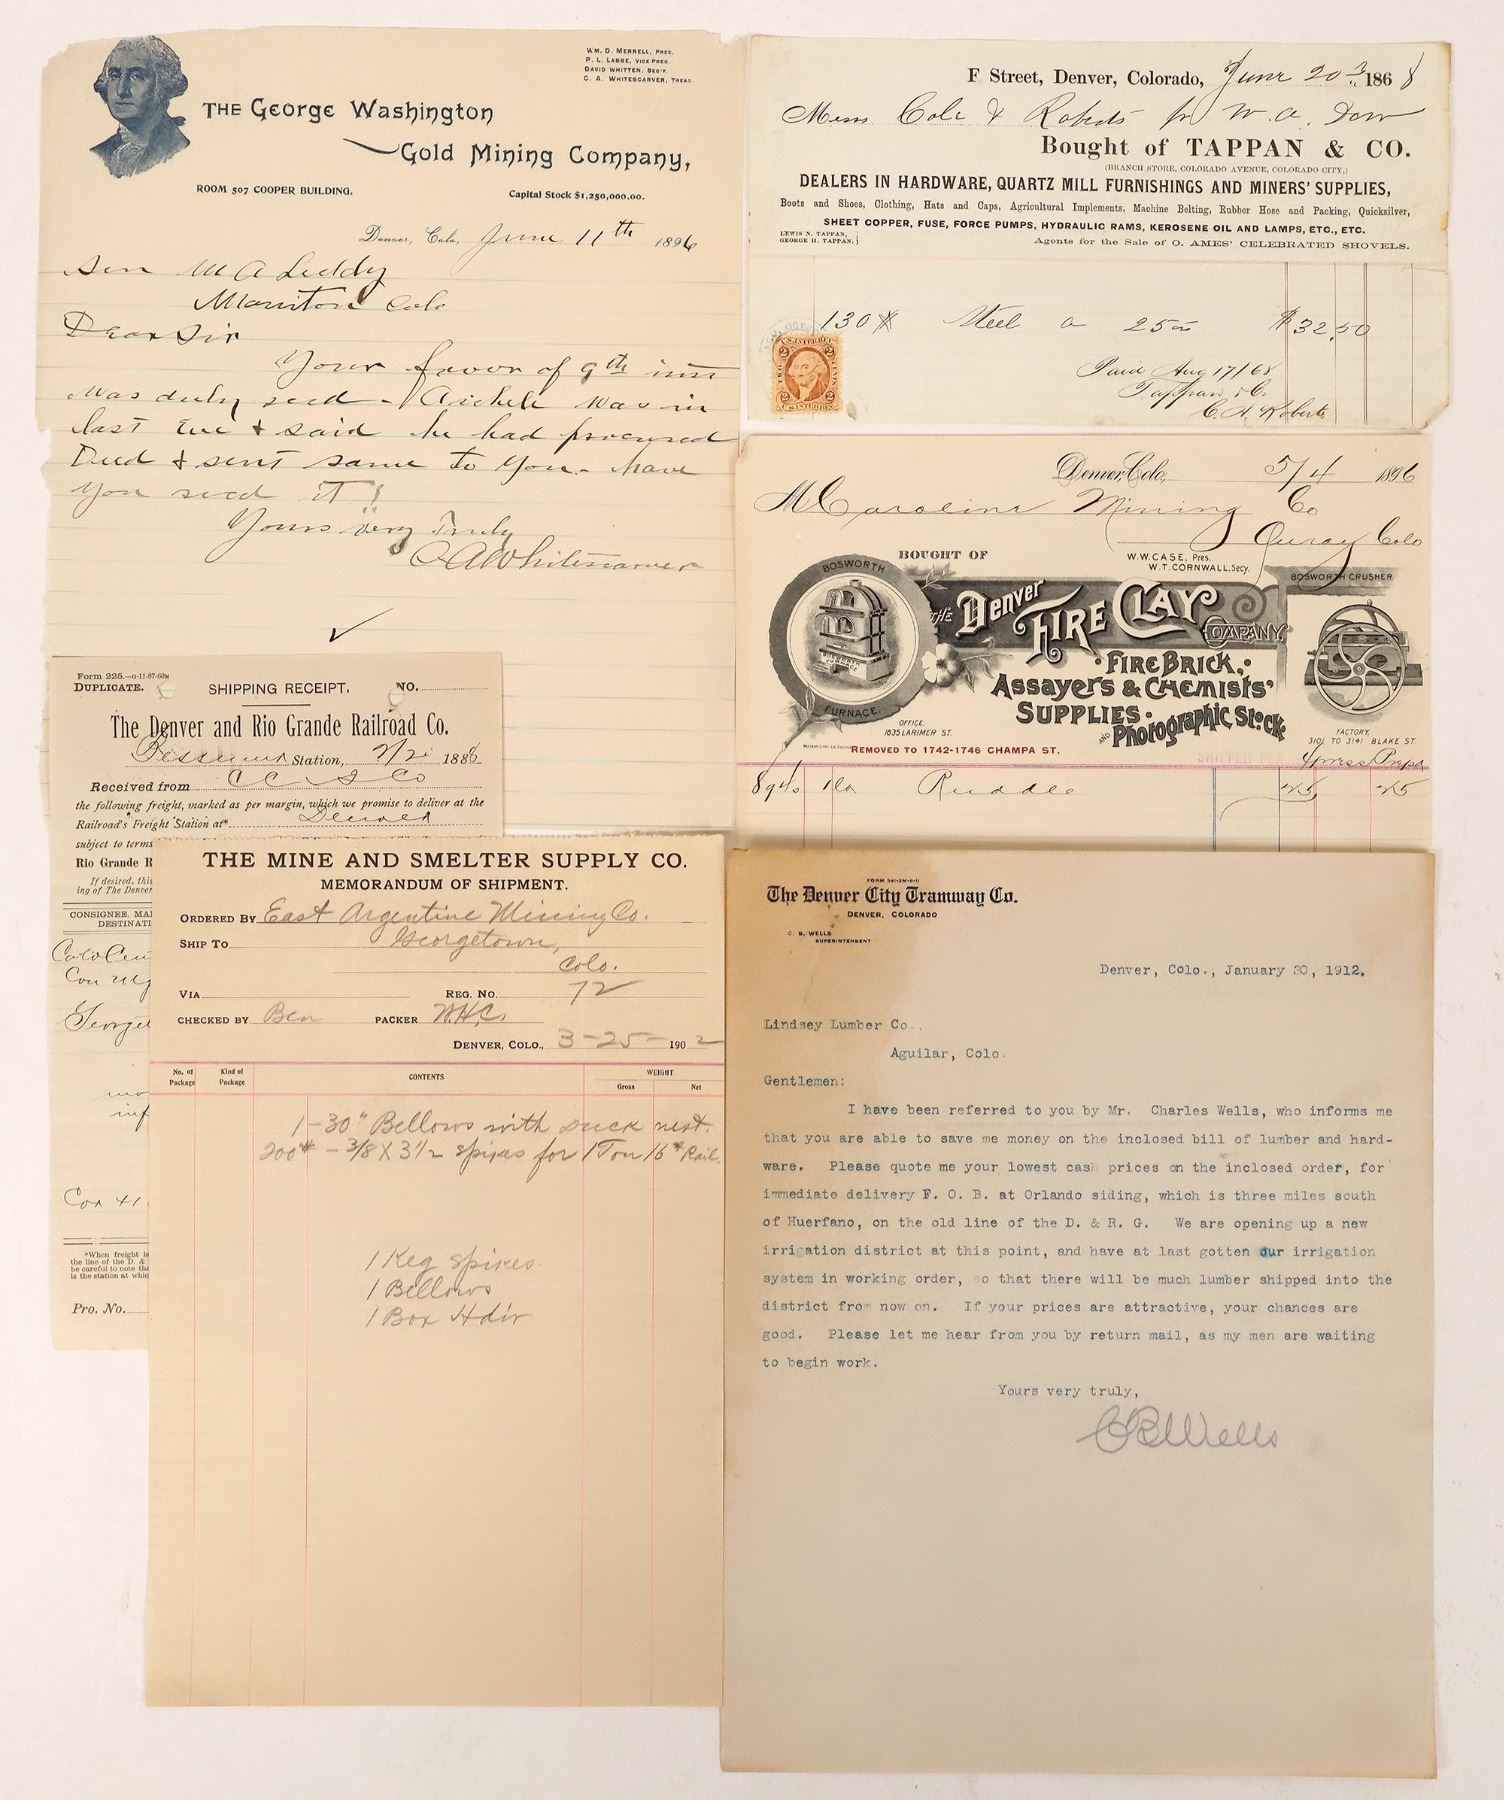 WM. D. MERRELL, PRES.
P. L. LABBE, VICE PRES.
DAVID WHITTEN, SEC'Y.
C. A. WHITESCARVER, TREAS.
THE George Washington
Gold Mining Company,
ROOM 507 COOPER BUILDING.
Capital Stock $1,250,000.00.
Denver, Colo, June 11th 1896
M A Leddy
Manitou Colo
Dear Sir
Your favor of 9th inst
was duly recd - was in
last Eve & said he had procured
Deed & sent same to you - have
you recd it?
Yours very Truly
C A Whitescarver
F Street, Denver, Colorado, June 20 1868
Mess Cole & Roberts pr W. A. Dow
Bought of TAPPAN & CO.
(BRANCH STORE, COLORADO AVENUE, COLORADO CITY,)
DEALERS IN HARDWARE, QUARTZ MILL FURNISHINGS AND MINERS' SUPPLIES,
Boots and Shoes, Clothing, Hats and Caps, Agricultural Implements, Machine Belting, Rubber Hose and Packing, Quicksilver,
SHEET COPPER, FUSE, FORCE PUMPS, HYDRAULIC RAMS, KEROSENE OIL AND LAMPS, ETC., ETC.
LEWIS N. TAPPAN,
GEORGE H. TAPPAN.
Agents for the Sale of O. AMES' CELEBRATED SHOVELS.
130 # Steel a 25 $32.50
U.S. INTER. REV.
2 2
TWO CENTS
U.S. INTER. REV.
Paid Aug 17/68
Tappan & Co.
C. A. Roberts
Denver, Colo, 5/4 1896
M Carolina Mining Co
Ouray Colo
BOUGHT OF
W. W. CASE, Pres.
W. T. CORNWALL, Secy.
BOSWORTH
FURNACE.
BOSWORTH CRUSHER
THE Denver
FIRE CLAY
COMPANY.
FIRE BRICK,
ASSAYERS & CHEMISTS'
SUPPLIES
AND Photographic Stock.
OFFICE,
1835 LARIMER ST.
FACTORY,
3101 TO 3141 BLAKE ST.
REMOVED TO 1742-1746 CHAMPA ST.
Xpress Prepd
Ruddle 25 25
Form 225.—6-11-87-60M
DUPLICATE.
SHIPPING RECEIPT. NO.
The Denver and Rio Grande Railroad Co.
Bessemer Station, 2/2 1888
Received from C C & Co
the following freight, marked as per margin, which we promise to deliver at the
Railroad's Freight Station at* Denver
subject to terms
Rio Grande R
If desired, this
ing of The Denver
CONSIGNEE, MA
DESTINATI
Con
Georget
inf
*When freight is
the line of the D. &
be careful to note th
is the station at whic
Pro. No.
THE MINE AND SMELTER SUPPLY CO.
MEMORANDUM OF SHIPMENT.
ORDERED BY East Argentine Mining Co.
SHIP TO Georgetown,
Colo.
VIA REG. NO. 72
CHECKED BY Ben PACKER W.H.C.
DENVER, COLO., 3-25- 1902
No. of Package Kind of Package CONTENTS WEIGHT
Gross Net
1-30" Bellows with Duck nest.
200# - 3/8 X 3 1/2 Spikes for 1 Ton 16# Rail
1 Keg Spikes
1 Bellows
1 Box Hdw
FORM 341-2M-6-11
The Denver City Tramway Co.
DENVER, COLORADO
C. B. WELLS
SUPERINTENDENT
Denver, Colo., January 30, 1912.
Lindsey Lumber Co.,
Aguilar, Colo.
Gentlemen:
I have been referred to you by Mr. Charles Wells, who informs me
that you are able to save me money on the inclosed bill of lumber and hard-
ware. Please quote me your lowest cash prices on the inclosed order, for
immediate delivery F. O. B. at Orlando siding, which is three miles south
of Huerfano, on the old line of the D. & R. G. We are opening up a new
irrigation district at this point, and have at last gotten our irrigation
system in working order, so that there will be much lumber shipped into the
district from now on. If your prices are attractive, your chances are
good. Please let me hear from you by return mail, as my men are waiting
to begin work.
Yours very truly,
C B Wells